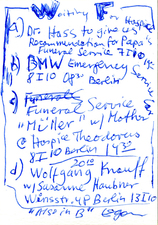 Waiting For Hospice
a) Dr. Hass to give us
Recommendation to Papa's
Funeral Service 7 I 10
b) BMW Emergency Service
8 I 10 Berlin
c) Funerals
Funeral Service
"Müller" w/ Mother
@ Hospice Theodorus
8 I 10 Berlin
2010
d) Wolfgang Knauff
w/ Susanne Haubner
Berlin 13 I 10
"Also in B"